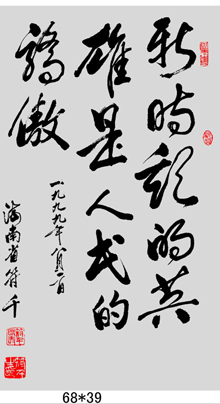 新时期的英
雄是人民的
驕傲
一九九九年八月一日
海南省符千
68*39